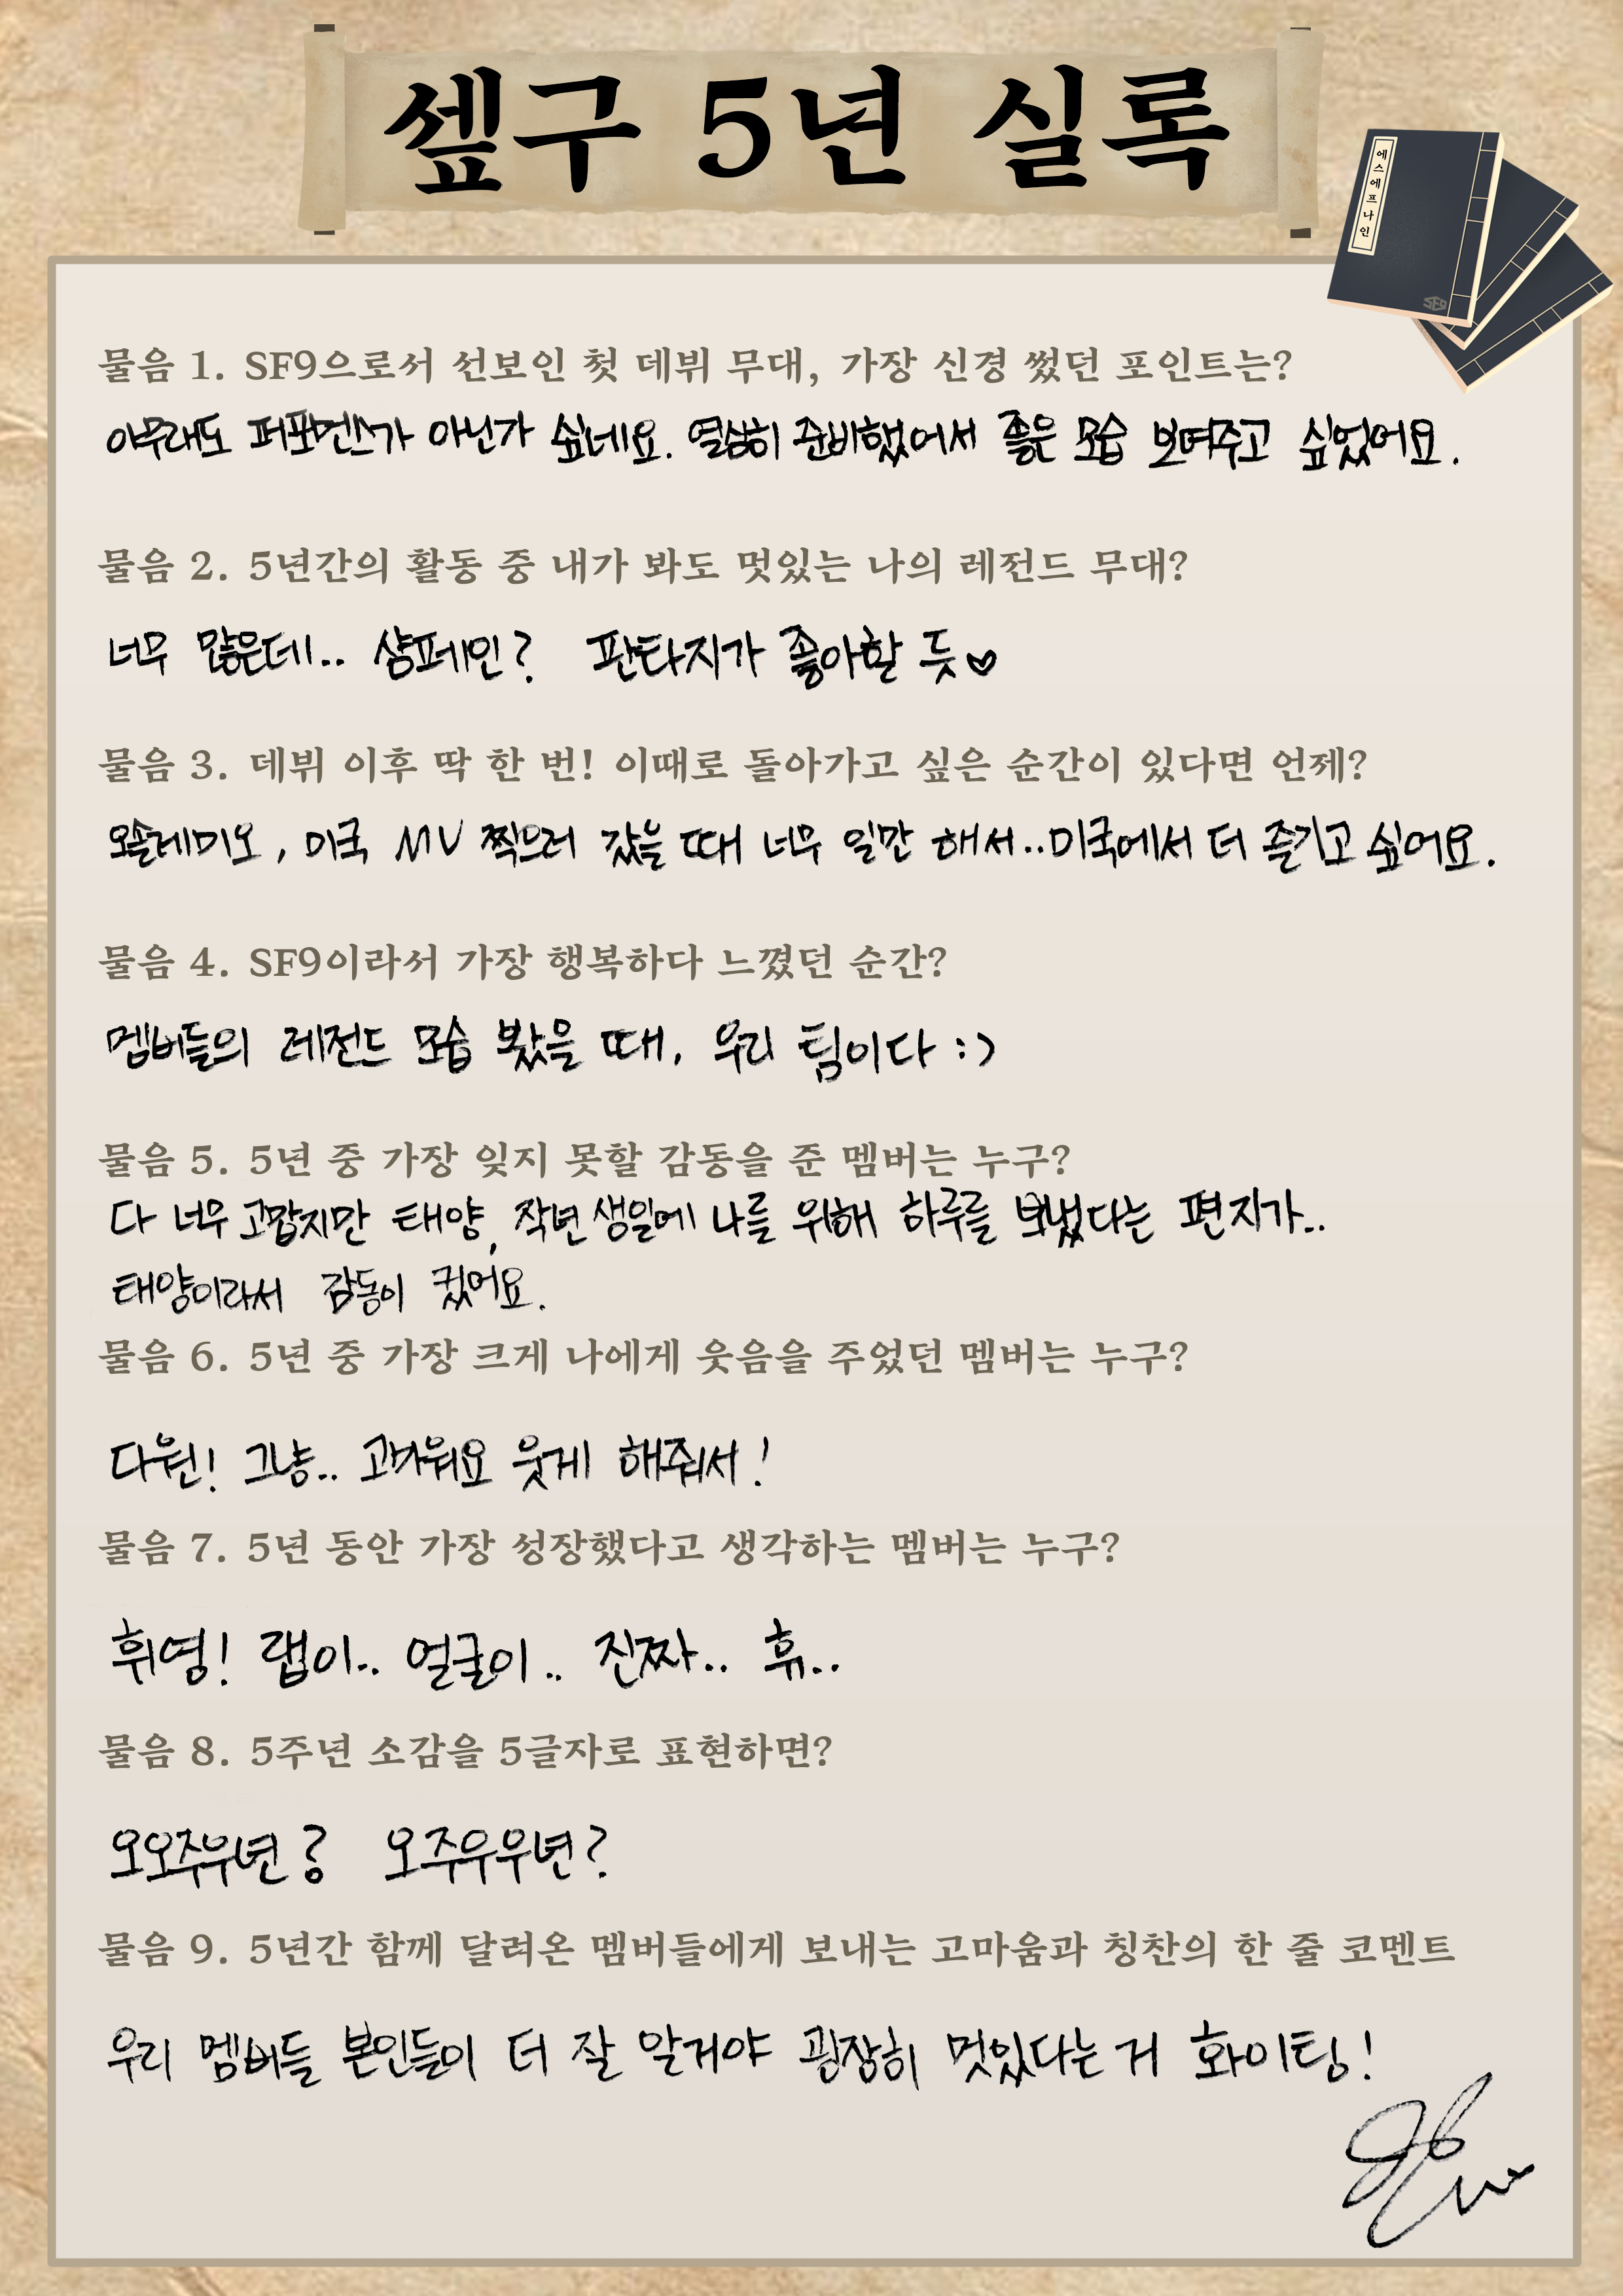 셒구 5년 실록
에스에프나인
SF9
물음 1. SF9으로서 선보인 첫 데뷔 무대, 가장 신경 썼던 포인트는?
아무래도 퍼포먼스가 아닌가 싶네요. 열심히 준비했어서 좋은 모습 보여주고 싶었어요.
물음 2. 5년간의 활동 중 내가 봐도 멋있는 나의 레전드 무대?
너무 많은데.. 샴페인? 판타지가 좋아할 듯♥
물음 3. 데뷔 이후 딱 한 번! 이때로 돌아가고 싶은 순간이 있다면 언제?
오솔레미오, 미국 MV 찍으러 갔을 때 너무 일만 해서..미국에서 더 즐기고 싶어요.
물음 4. SF9이라서 가장 행복하다 느꼈던 순간?
멤버들의 레전드 모습 봤을 때, 우리 팀이다 :)
물음 5. 5년 중 가장 잊지 못할 감동을 준 멤버는 누구?
다 너무 고맙지만 태양, 작년 생일에 나를 위해 하루를 보냈다는 편지가..
태양이라서 감동이 컸어요.
물음 6. 5년 중 가장 크게 나에게 웃음을 주었던 멤버는 누구?
다원! 그냥.. 고마워요 웃게 해줘서!
물음 7. 5년 동안 가장 성장했다고 생각하는 멤버는 누구?
휘영! 랩이.. 얼굴이.. 진짜.. 휴..
물음 8. 5주년 소감을 5글자로 표현하면?
오오주우년? 오주우우년?
물음 9. 5년간 함께 달려온 멤버들에게 보내는 고마움과 칭찬의 한 줄 코멘트
우리 멤버들 본인들이 더 잘 알거야 굉장히 멋있다는 거 화이팅!